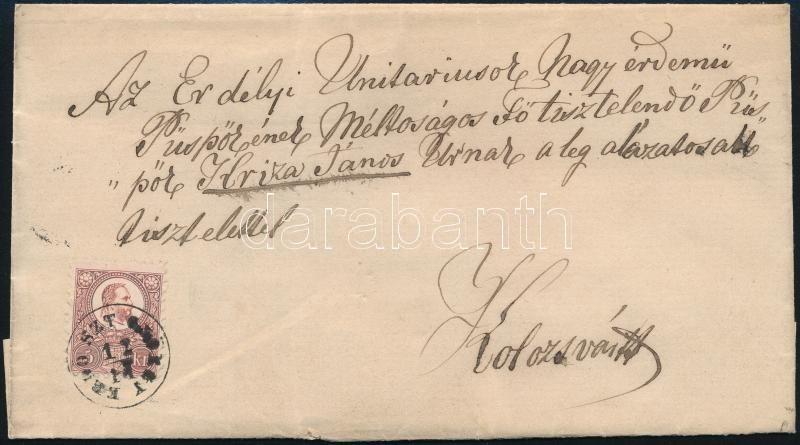 Az Erdélyi Unitariusok Nagy érdemü
Püspökének Méltoságos Fő tisztelendő Püs„
„pök Kriza János Urnak a leg alázatosabb
tisztelettel
darabanth
Kolozsvártt
SZT